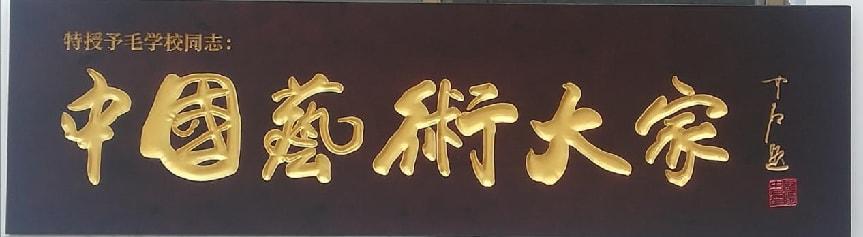 特授予毛学校同志:
中國藝術大家
中石题